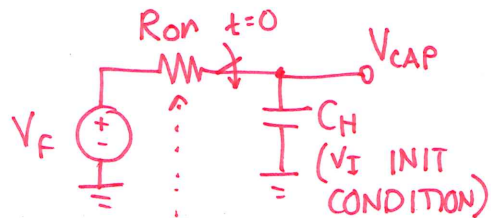 Ron t=0
VCAP
VF
+
-
CH
(VI INIT
CONDITION)